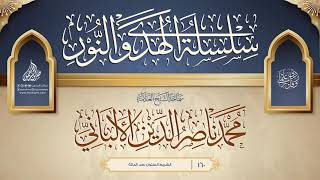 سلسلة الهدى والنور
سماحة الشيخ العلامة
محمد ناصر الدين الألباني
١٦٠
الشريط الستون بعد المائة